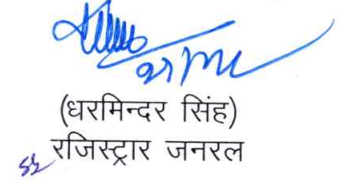 (धरमिन्दर सिंह)
रजिस्ट्रार जनरल